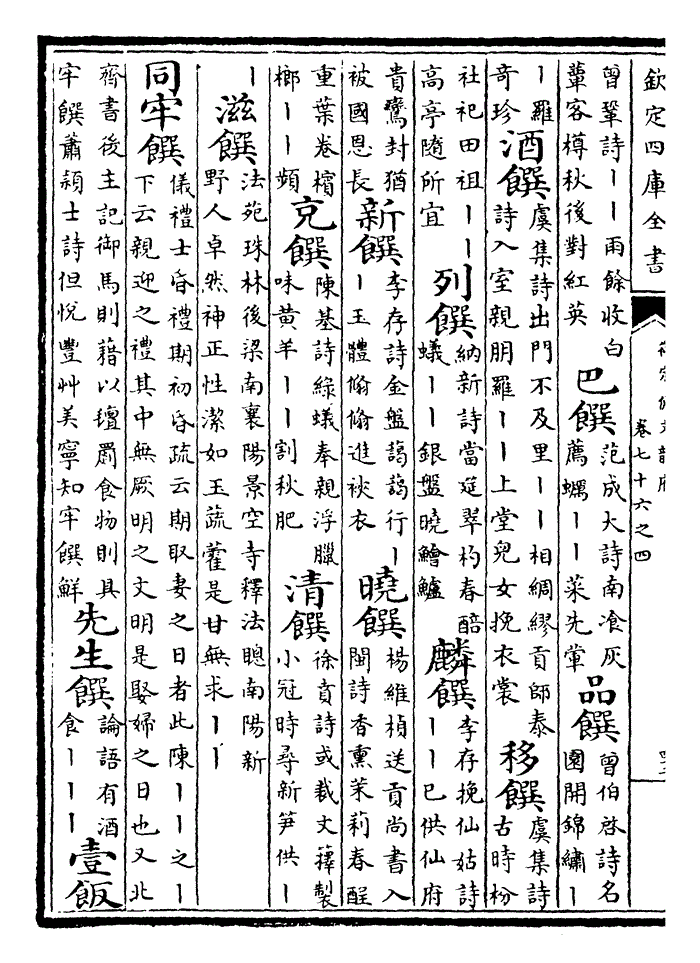 欽定四庫全書
卷七十六之四
曾鞏詩丨丨雨餘收白
蕈客樽秋後對紅英
巴饌
范成大詩南飡灰
薦蠣丨丨菜先葷
品饌
曾伯啓詩名
園開錦繡丨
丨羅
奇珍
酒饌
虞集詩出門不及里丨丨相綢繆貢師泰
詩入室親朋羅丨丨上堂兒女挽衣裳
移饌
虞集詩
古時枌
社祀田祖丨丨
高亭隨所宜
列饌
納新詩當筵翠杓春醅
蟻丨丨銀盤曉鱠鱸
麟饌
李存挽仙姑詩
丨丨已供仙府
貴鸞封猶
被國恩長
新饌
李存詩金盤藹藹行丨
丨玉體翛翛進裌衣
曉饌
楊維楨送貢尚書入
閩詩香熏茉莉春酲
重葉卷檳
榔丨丨頻
克饌
陳基詩綠蟻奉親浮臘
味黄羊丨丨割秋肥
清饌
徐賁詩或裁文籜製
小冠時尋新笋供丨
丨
滋饌
法苑珠林後梁南襄陽景空寺釋法聰南陽新
野人卓然神正性潔如玉蔬藿是甘無求丨丨
同牢饌
儀禮士昏禮期初昏疏云期取妻之日者此陳丨丨之丨
下云親迎之禮其中無厥明之文明是娶婦之日也又北
齊書後主記御馬則藉以氊罽食物則具
牢饌蕭頴士詩但悅豐艸美寧知牢饌鮮
先生饌
論語有酒
食丨丨丨
壹飯